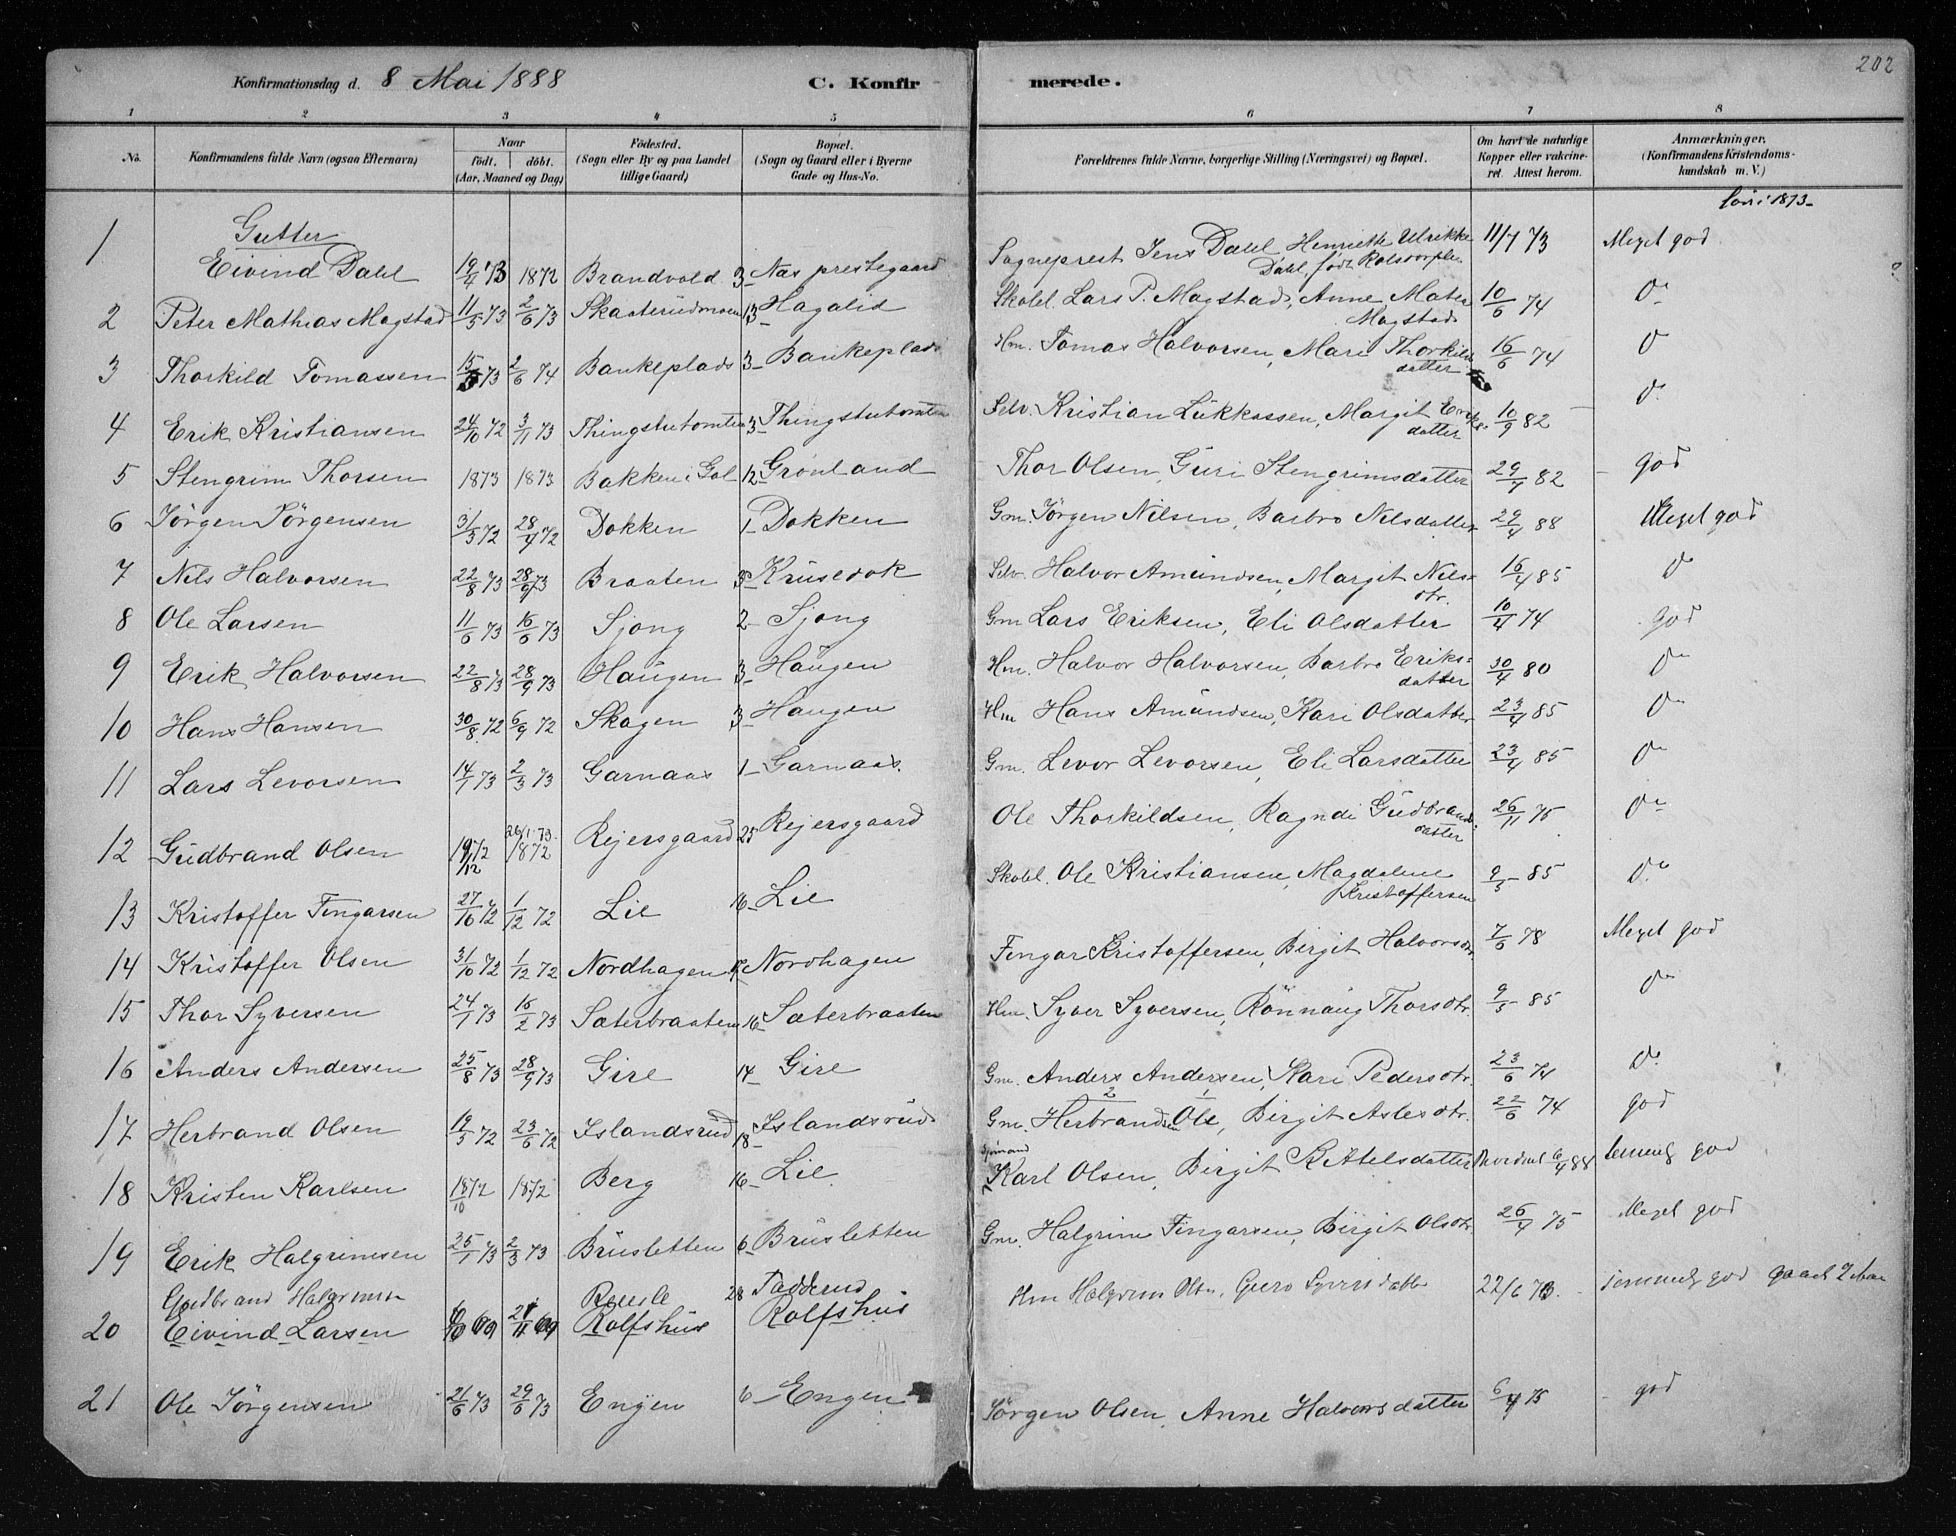 202
Konfirmationsdag d. 8 Mai 1888 C. Konfirmerede.
1 2 3 4 5 6 7 8
No. Konfirmandens fulde Navn (ogsaa Efternavn) Naar født. døbt. (Aar, Maaned og Dag) Fødested. (Sogn eller By og paa Landet tillige Gaard) Bopæl. (Sogn og Gaard eller i Byerne Gade og Hus-No. Forældrenes fulde Navne, borgerlige Stilling (Næringsvei) og Bopæl. Om havt de naturlige Kopper eller vakcineret. Attest herom. Anmærkninger. (Konfirmandens Kristendomskundskab m. V.)
1873
Gutter
1 Eivind Dahl 19/4 73 1872 Brandvold 3 Næs prestegaard Sogneprest Jens Dahl, Henriette Ulrikke Dahl, født 11/7 73 Meget god
2 Peter Mathias Magstad 11/5 73 2/6 73 Skaaterudmoen 13 Hagalid Skolel. Lars P. Magstad, Anne Mater Magstad 10/6 74 do
3 Thorkild Tomassen 15/5 73 2/6 74 Bankeplads 3 Bankeplads Hm. Tomas Halvorsen, Mari Thorkildsdatter 16/6 74 do
4 Erik Kristiansen 24/10 72 3/11 73 Thingstutomten 3 Thingstutomten Selv. Kristian Lukkassen, Margit Eriksdatter 10/9 82 do
5 Stengrim Thorsen 1873 1873 Bakken i Gol 12 Grønland Thor Olsen, Guri Stengrimsdatter 29/4 82 god
6 Jørgen Jørgensen 31/3 72 28/4 72 Dokken 1 Dokken Gm. Jørgen Nilsen, Barbro Nilsdatter 29/4 88 Meget god
7 Nils Halvorsen 22/8 73 28/9 73 Braaten 3 Krusedok Selv. Halvor Amundsen, Margit Nilsdtr. 16/4 85 do
8 Ole Larsen 11/6 73 16/6 73 Sjong 2 Sjong Gm Lars Eriksen, Eli Olsdatter 10/4 74 god
9 Erik Halvorsen 22/8 73 28/9 73 Haugen 3 Haugen Hm. Halvor Halvorsen, Barbro Eriksdatter 30/4 80 do
10 Hans Hansen 30/8 72 6/9 72 Skagen 3 Haugen Hm Hans Amundsen, Kari Olsdatter 23/4 85 do
11 Lars Levorsen 14/1 73 2/3 73 Garnaas 1 Garnaas. Gm. Levor Levorsen, Eli Larsdatter 23/4 85 do
12 Gudbrand Olsen 1972/12 26/1 73 1872 Rejersgaard 25 Rejersgaard Ole Thorkildsen, Ragndi Gudbrandsdatter 26/11 75 do
13 Kristoffer Fingarsen 27/10 72 1/12 72 Lie 16 Lie Skolel. Ole Kristiansen, Magdalene Kristoffersen 9/5 85 do
14 Kristoffer Olsen 31/10 72 1/12 72 Nordhagen Nordhagen Fingar Kristoffersen, Birgit Halvorsdtr 7/6 78 Meget god
15 Thor Syversen 24/1 73 16/2 73 Sæterbraaten 16 Sæterbraaten Hm. Syver Syversen, Rønnaug Thorsdtr. 9/5 85 do
16 Anders Andersen 25/8 73 28/9 73 Gire 14 Gire Gm. Anders Andersen, Kari Pedersdtr. 23/6 74 do
17 Herbrand Olsen 19/5 72 23/6 72 Islandsrud 18 Islandsrud Gm. Herbrandsen Ole, Birgit Aslesdtr. 22/6 74 god
18 Kristen Karlsen 1872/10 1872 Berg 16 Lie Karl Olsen, Birgit Kittelsdatter 6/4 88 temmelig god
19 Erik Halgrimsen 25/1 73 2/3 73 Brusletten 6 Brusletten Gm. Halgrim Fingarsen, Birgit Olsdtr. 26/4 75 Meget god
Gudbrand Halgrimsen 28 Hm Halgrim Olsn, Guro Syversdatter 22/6 73 temmelig god
20 Eivind Larsen Rolfshus Rolfshus
21 Ole Jørgensen 21/6 73 29/6 73 Engen 6 Engen Jørgen Olsen, Anne Halvorsdatter 6/4 75 god